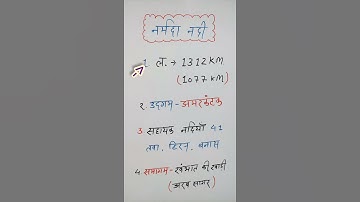 नर्मदा नदी
1 ल. → 1312 KM
(1077 KM)
2 उद्गम - अमरकंटक
3 सहायक नदियाँ 41
तवा, हिरन, बनास
4 समागम - खंभात की खाड़ी
(अरब सागर)